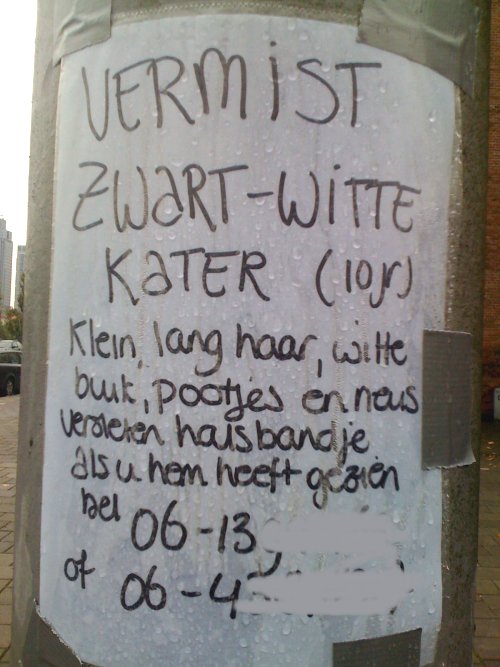 VERMIST
ZWART-WITTE
KATER (10jr)
Klein, lang haar, witte
buik, pootjes en neus
versleten halsbandje
als u hem heeft gezien
bel 06-13
of 06-4